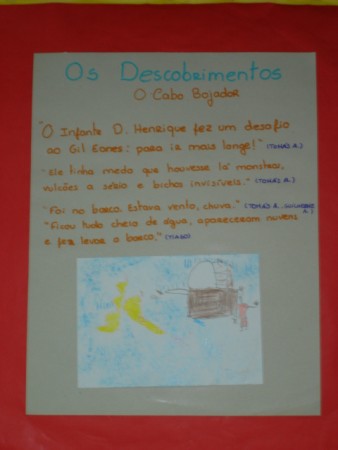 Os Descobrimentos
O Cabo Bojador
"O Infante D. Henrique fez um desafio
ao Gil Eanes: para ir mais longe!" (TOMÁS A.)
"Ele tinha medo que houvesse lá monstros,
vulcões a sério e bichos invisíveis." (TOMÁS A.)
"Foi no barco. Estava vento, chuva." (TOMÁS A., GUILHERME A.)
"Ficou tudo cheio de água, apareceram nuvens
e fez levar o barco." (TIAGO)